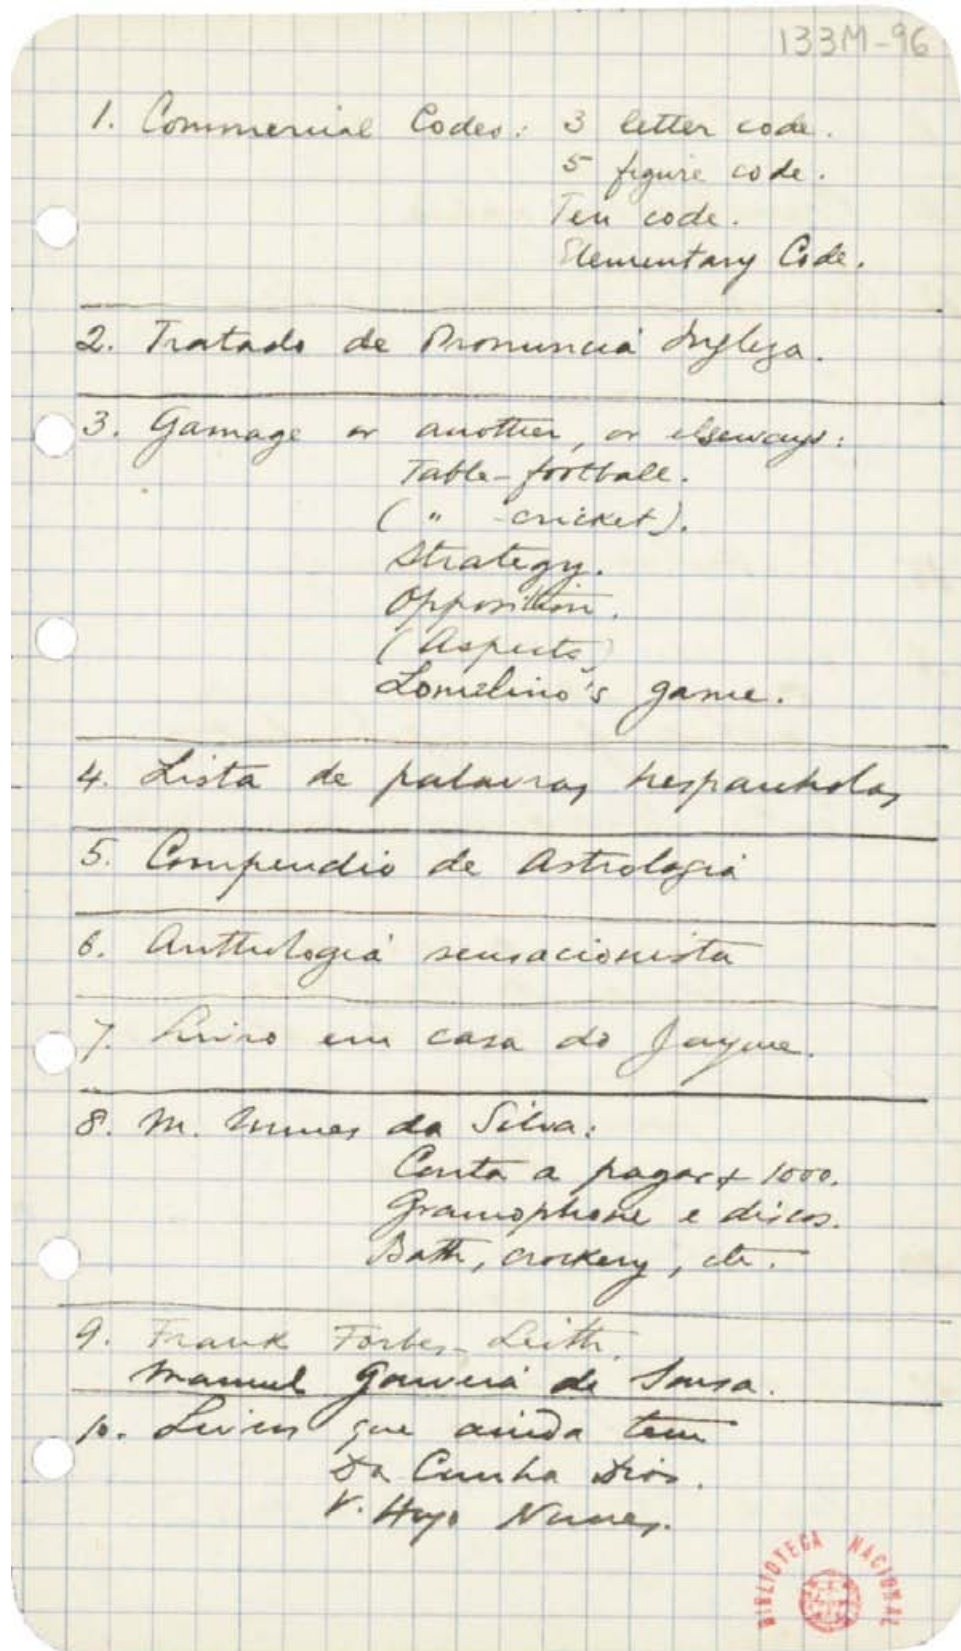 133M-96
1. Commercial Codes: 3 letter code.
5 figure code.
Ten code.
Elementary Code.
2. Tratado de Pronuncia Ingleza.
3. Gamage or another, or elseways:
Table-football.
( " -cricket).
Strategy.
Opposition.
(Aspects)
Lomelino's game.
4. Lista de palavras hespanholas
5. Compendio de Astrologia
6. Anthologia sensacionista
7. Livro em casa do Jayme.
8. M. Nunes da Silva:
Conta a pagar + 1000.
Gramophone e discos.
Bath, crockery, etc.
9. Frank Forbes-Leith.
Manuel Gouveia de Sousa.
10. Livros que ainda tem
Da Cunha Dias.
V. Hugo Nunes.
BIBLIOTECA NACIONAL